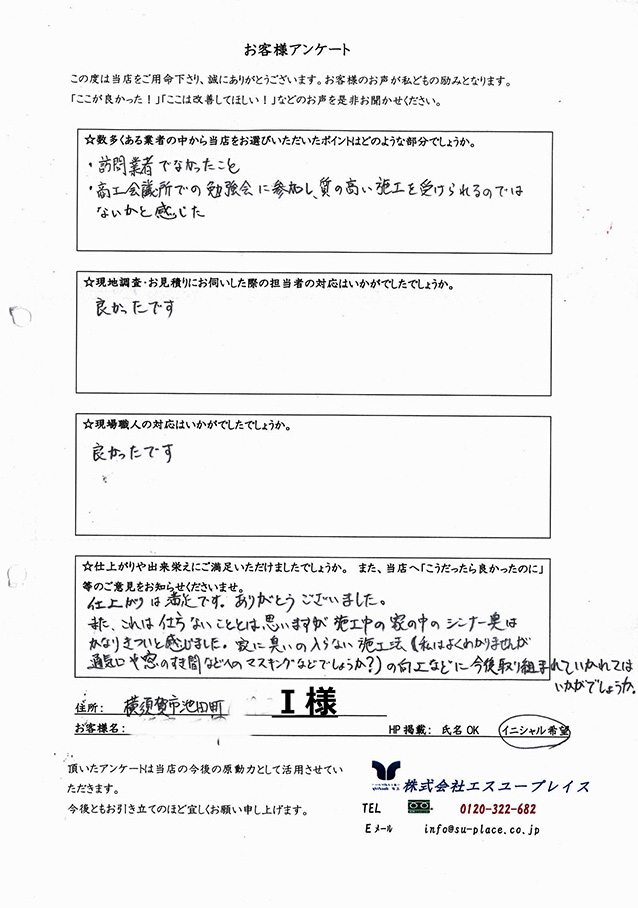 お客様アンケート
この度は当店をご用命下さり、誠にありがとうございます。お客様のお声が私どもの励みとなります。
「ここが良かった！」「ここは改善してほしい！」などのお声を是非お聞かせください。
☆数多くある業者の中から当店をお選びいただいたポイントはどのような部分でしょうか。
・訪問業者でなかったこと
・商工会議所での勉強会に参加し、質の高い施工を受けられるのでは
ないかと感じた
☆現地調査・お見積りにお伺いした際の担当者の対応はいかがでしたでしょうか。
良かったです
☆現場職人の対応はいかがでしたでしょうか。
良かったです
☆仕上がりや出来栄えにご満足いただけましたでしょうか。 また、当店へ「こうだったら良かったのに」
等のご意見をお知らせくださいませ。
仕上がりは満足です。ありがとうございました。
また、これは仕方ないこととは思いますが施工中の家の中のシンナー臭は
かなりきついと感じました。家に臭いの入らない施工法（私はよくわかりませんが
通気口や窓のすき間などへのマスキングなどでしょうか？）の向上などに今後取り組まれていかれては
いかがでしょうか。
住所： 横須賀市池田町 I様
お客様名： HP掲載： 氏名OK イニシャル希望
頂いたアンケートは当店の今後の原動力として活用させてい
ただきます。
今後ともお引き立てのほど宜しくお願い申し上げます。
株式会社エスユープレイス
TEL 0120-322-682
Eメール info@su-place.co.jp